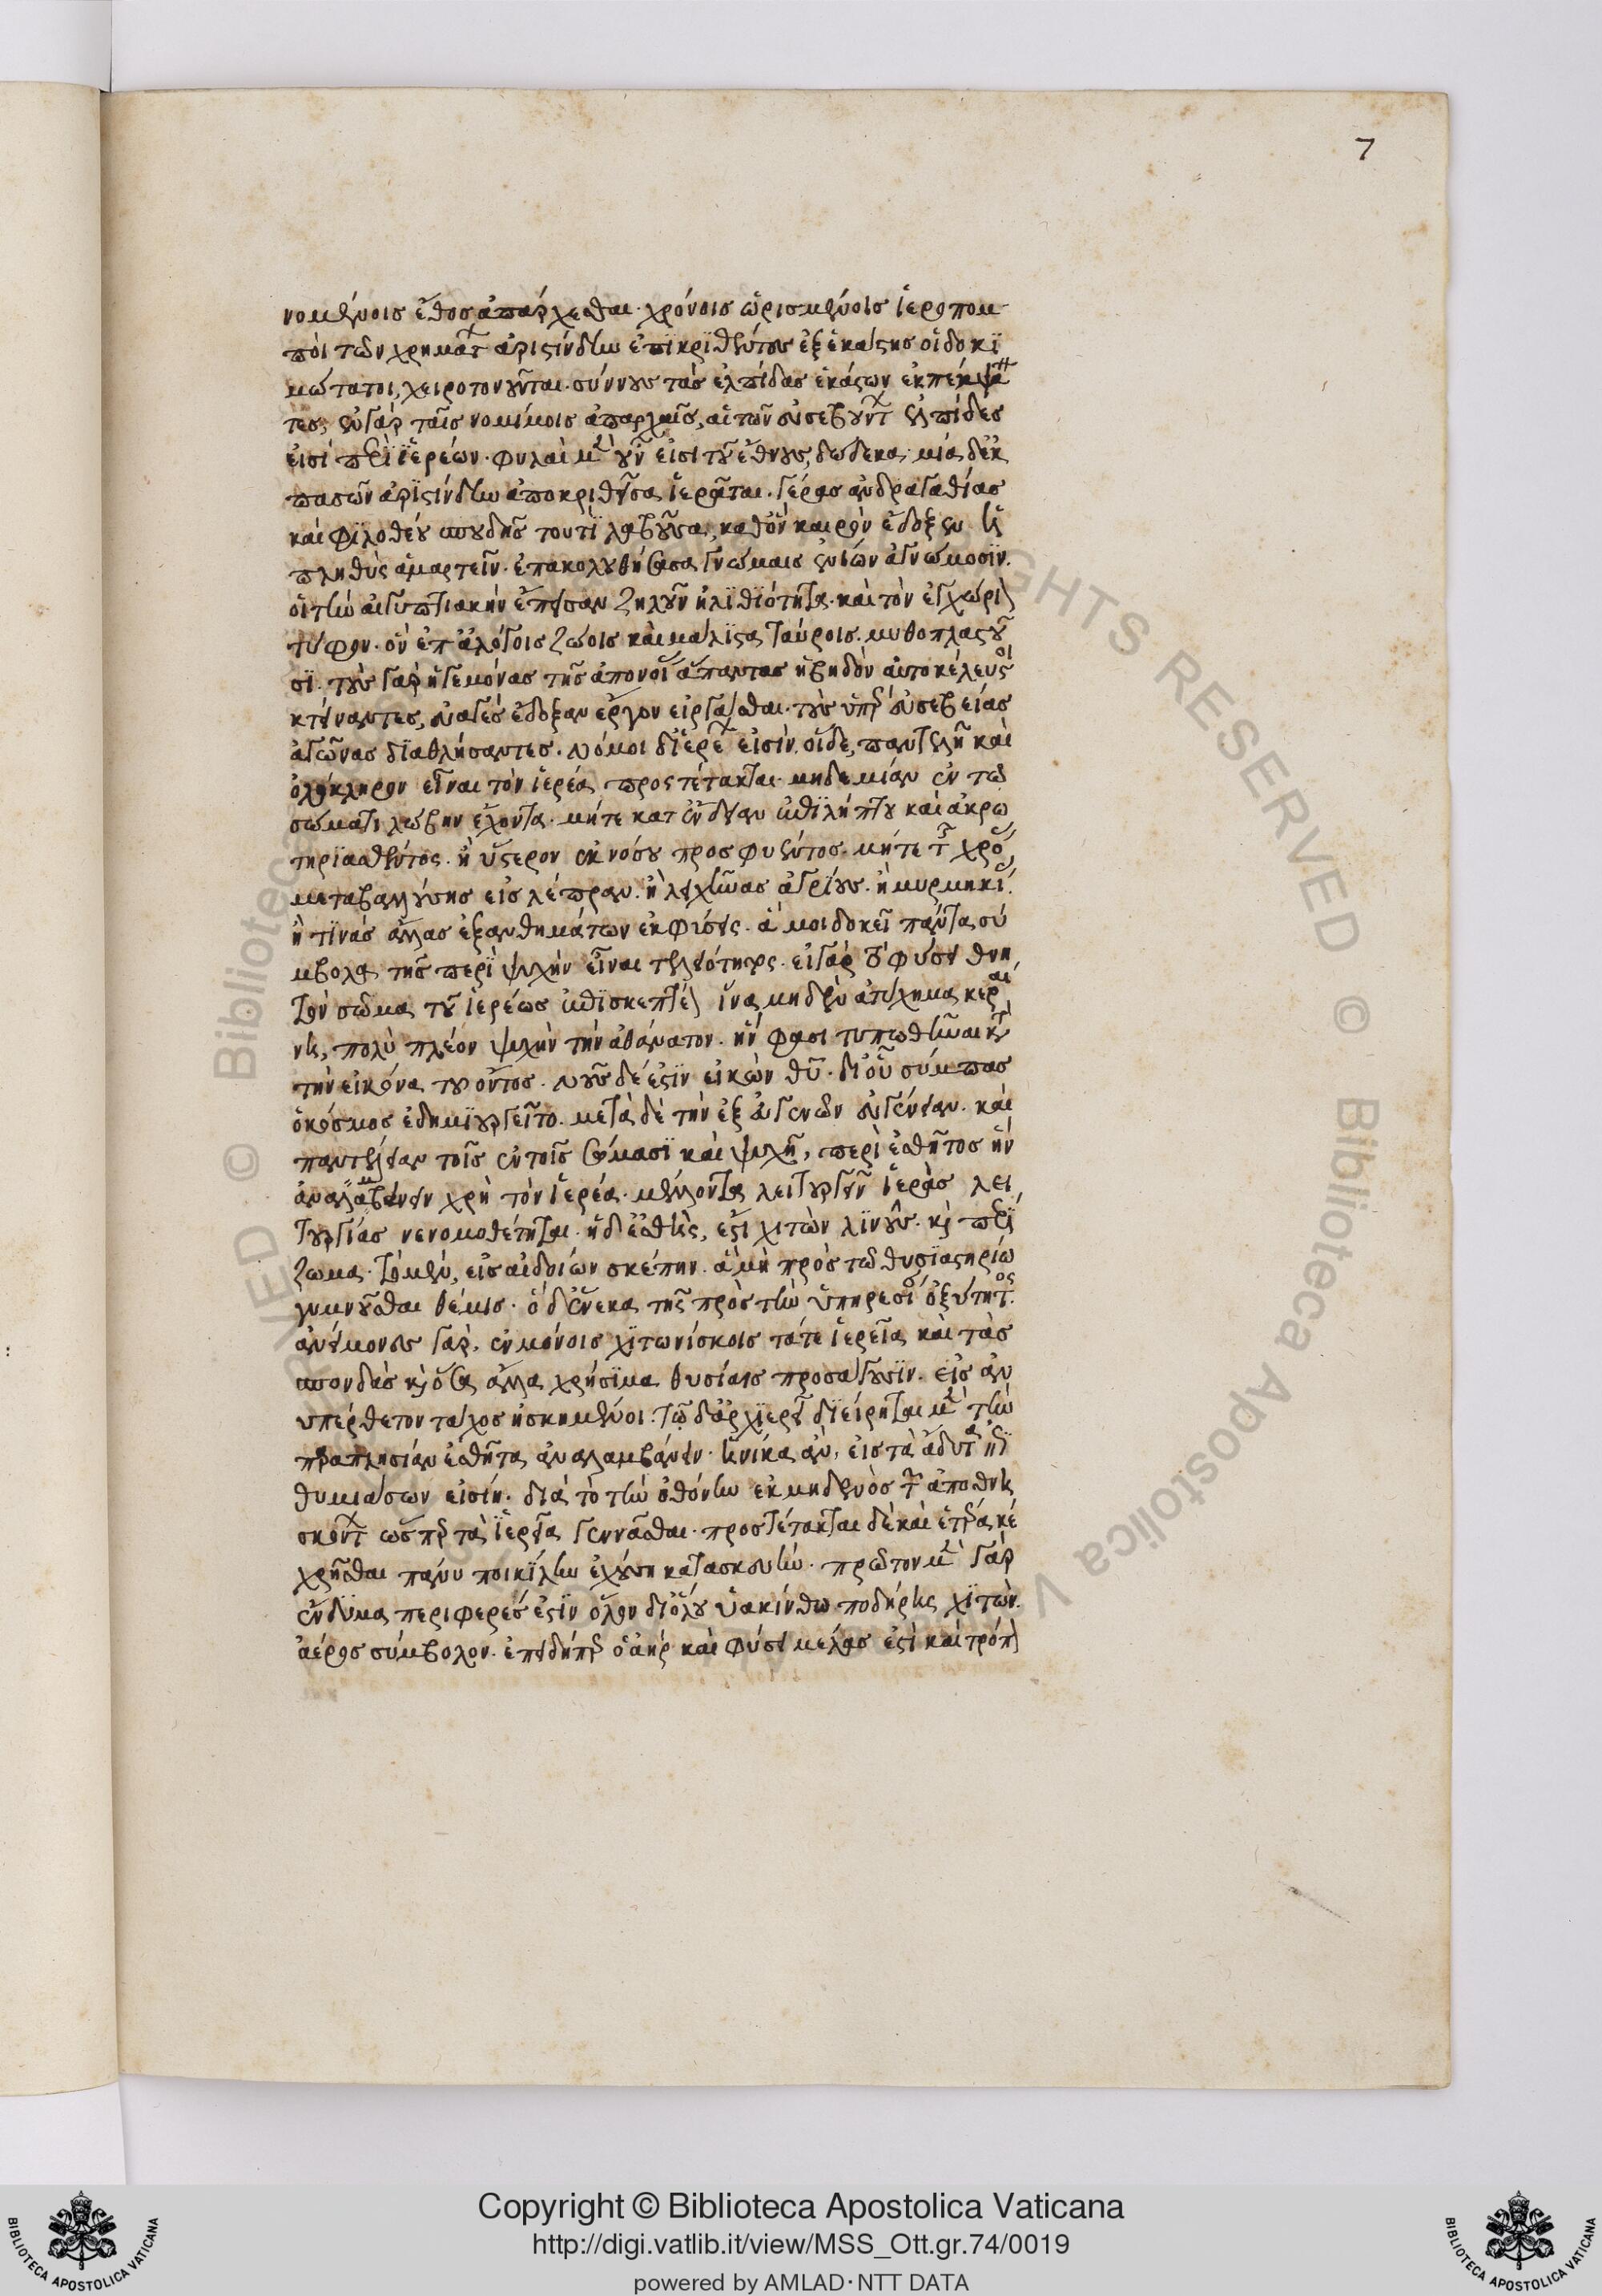 7
νομένοις ἔθος ἀπάρχεσθαι. χρόνοις ὡρισμένοις ἱεροπομ
ποὶ τῶν χρημάτ ἀριστίνδην ἐπϊκρϊθέντες ἐξ ἑκάστης οἱ δοκϊ
μώτατοι, χειροτονοῦνται. σύννους τὰς ἐλπίδας ἑκάστων
τες, ἐν γὰρ ταῖς νομίμοις ἀπαρχαῖς, αἱ τῶν εὐσεβούντ ἐλπίδες
εἰσί περὶ ἱερέων. φυλαὶ μὲν οὖν εἰσὶ τοῦ ἔθνους, δώδεκα. μία δἐκ
πασῶν ἀρϊστίνδην ἀποκριθεῖσα ἱερᾶται. γέρας ἀνδραγαθίας
καὶ φϊλοθέου σπουδῆς τουτῒ λαβοῦσα, καθ ὃν καιρὸν ἔδοξεν ἡ
πληθὺς ἁμαρτεῖν. ἐπακολουθήσασα γνώμαις ἐνίων ἀγνώμοσϊν.
οἳ τὴν αἰγυπτιακὴν ἔπεισαν ζηλοῦν ἠλϊθϊότητα. καὶ τὸν ἐγχώριον
τύφον. ὃν ἐπ ἀλόγοις ζώοις καὶ μάλϊστα ταύροις. μυθοπλαστοῦ
σϊ. τοὺς γὰρ ἡγεμόνας τῆς ἀπονοί ἅπαντας ἡβηδὸν αὐτοκέλευστοι
κτείναντες, εὐαγὲς ἔδοξαν ἔργον εἰργάσθαι. τοὺς ὑπὲρ εὐσεβείας
ἀγῶνας δϊαθλήσαντες. νόμοι δἱερέ εἰσὶν οἵδε, παντελῆ καὶ
ὁλόκληρον εἶναι τὸν ἱερέα προστέτακται. μηδεμίαν ἐν τῶ
σώματι λώβην ἔχοντα. μήτε κατ ἔνδειαν ἐπϊλήπτου καὶ ἀκρω
τηρϊασθέντος. ἢ ὕστερον ἐκ νόσου προσφυέντος. μήτε τ χρό
μεταβαλούσης εἰς λέπραν. ἢ λειχῆνας ἀγρϊους. ἢ μυρμηκί.
ἢ τϊνὰς ἄλλας ἐξανθημάτων ἐκφύσεις. ἅ μοι δοκεῖ πάντα σύ
μβολα τῆς περῒ ψυχὴν εἶναι τελειότητος. εἰ γὰρ τὸ φύσει θνη
τὸν σῶμα τοῦ ἱερέως ἐπϊσκεπτέον ἵνα μηδὲν ἀτύχημα
, πολὺ πλέον ψυχὴν τὴν ἀθάνατον. ἥν φασι τυπωθῆναι
τὴν εἰκόνα τοῦ ὄντος. λόγος δέ ἐστϊν εἰκὼν θῦ. δι οὗ σύμπας
ὁ κόσμος ἐδημϊουργεῖτο. μετὰ δὲ τὴν ἐξ εὐγενῶν εὐγένειαν. καὶ
παντέλειαν τοῖς ἐν τοῖς σώμασϊ καὶ ψυχῆ, περὶ ἐσθῆτος ἣν
ἀναλαμβάνειν χρὴ τὸν ἱερέα. μέλλοντα λειτουργεῖν ἱερὰς λει
τουργίας νενομοθέτηται. ἡ δἐσθὴς, ἐστι χιτὼν λϊνοῦς. κὶ περϊ
ζωμα. τὸ μὲν, εἰς αἰδοίων σκέπην. ἃ μὴ πρὸς τῶ θυσϊαστηρίω
γυμνοῦσθαι θέμις. ὁ δἕνεκα τῆς πρὸς τὴν ὑπηρεσί ὀξύτητος
ἀνείμονες γὰρ. ἐν μόνοις χϊτωνίσκοις τά τε ἱερεῖα καὶ τὰς
σπονδὰς κὶ ὅσα ἄλλα χρήσϊμα θυσίαις προσάγουσϊν. εἰς ἀν
υπέρθετον τάχος ἠσκημένοι. τῶ δἀρχϊερεῖ δϊείρηται μὲν τὴν
πραπλησίαν ἐσθῆτα ἀναλαμβάνειν. ἡνίκα ἂν, εἰς τὰ ἄδυτα
θυμιάσων εἰσίη. διὰ τὸ τὴν ὀθόνην ἐκ μηδενὸς τ ἀποθνη
σκόντ ὥσπερ τὰ ἱερεῖα γεννᾶσθαι. προστέτακται δὲ καὶ ἑτέρα κέ
χρῆσθαι πάνυ ποικϊλην ἐχούση κατασκευὴν. πρῶτον μὲν γὰρ
ἔνδυμα περιφερές ἐστϊν ὅλον δι ὅλου ὑακίνθω ποδήρης χϊτών.
ἀέρος σύμβολον. ἐπειδήπερ ὁ ἀὴρ καὶ φύσει μέλας ἐστὶ καὶ τρόπον
Copyright © Biblioteca Apostolica Vaticana
http://digi.vatlib.it/view/MSS_Ott.gr.74/0019
powered by AMLAD·NTT DATA